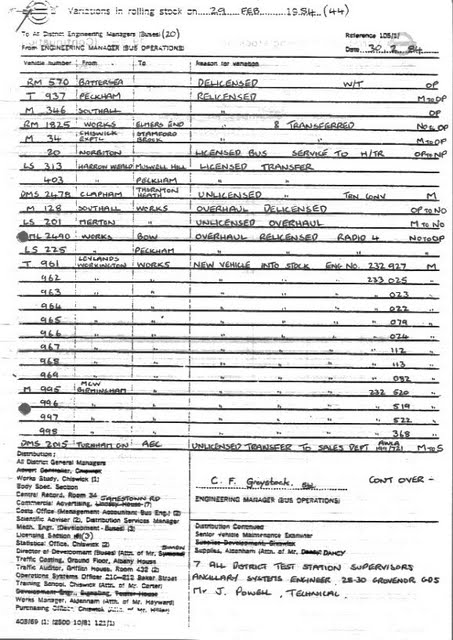 Variations in rolling stock on 29 FEB 1984 (44)
To All District Engineering Managers (Buses) (20)
Reference 105/1/
From ENGINEERING MANAGER (BUS OPERATIONS)
Date 30.2.84
Vehicle number From To Reason for variation
RM 570 BATTERSEA DELICENSED W/T OP
T 937 PECKHAM RELICENSED M TO OP
M 346 SOUTHALL " OP
RM 1825 WORKS ELMERS END " & TRANSFERRED NO TO OP
M 34 CHISWICK EXPTL STAMFORD BROOK " " M TO OP
20 NORBITON LICENSED BUS SERVICE TO H/TR OP TO NP
LS 313 HARROW WEALD MUSWELL HILL LICENSED TRANSFER
403 " PECKHAM " "
DMS 2478 CLAPHAM THORNTON HEATH UNLICENSED " TEN CONV M
M 128 SOUTHALL WORKS OVERHAUL DELICENSED OP TO NO
LS 201 MERTON " UNLICENSED OVERHAUL M TO NO
ML 2490 WORKS BOW OVERHAUL RELICENSED RADIO 4 NO TO OP
LS 225 " PECKHAM " " "
T 961 LEYLANDS WORKINGTON WORKS NEW VEHICLE INTO STOCK ENG NO. 232 927 M
962 " " " " " 233 025 "
963 " " " " " 023 "
964 " " " " " 022 "
965 " " " " " 079 "
966 " " " " " 024 "
967 " " " " " 112 "
968 " " " " " 113 "
969 " " " " " 082 "
M 995 MCW BIRMINGHAM " " " " 232 620 "
996 " " " " " 519 "
997 " " " " " 522 "
998 " " " " " 368 "
DMS 2015 TURNHAM GN AEC UNLICENSED TRANSFER TO SALES DEPT M TO S
Distribution:
All District General Managers
Works Study, Chiswick (1)
Body Spec. Section
Central Record, Room 34
Commercial Advertising,
Costs Office (Management Accountant Bus Eng.) (2)
Scientific Adviser (2), Distribution Services Manager
Mech. Engr. (Development - Buses) (3)
Licensing Section (3)
Statistical Office, Chiswick (2)
Director of Development (Buses) (Attn. of Mr.
Traffic Costing, Ground Floor, Albany House
Traffic Auditor, Griffin House, Room 102 (2)
Operations Systems Office 210-212 Baker Street
Training School, Chiswick (Attn. of Mr. Carter)
Works Manager, Aldenham (Attn. of Mr. Hayward)
Purchasing
403/69 (1) (2500 10/81 121/1)
C. F. Graystock.
CONT OVER -
ENGINEERING MANAGER (BUS OPERATIONS)
Distribution Continued
Senior Vehicle Maintenance Examiner
Supplies Development, Chiswick
Supplies, Aldenham (Attn. of Mr. DANCY
7 ALL DISTRICT TEST STATION SUPERVISORS
ANCILLARY SYSTEMS ENGINEER 28-30 GROVENOR GDS
Mr J. POWELL, TECHNICAL.